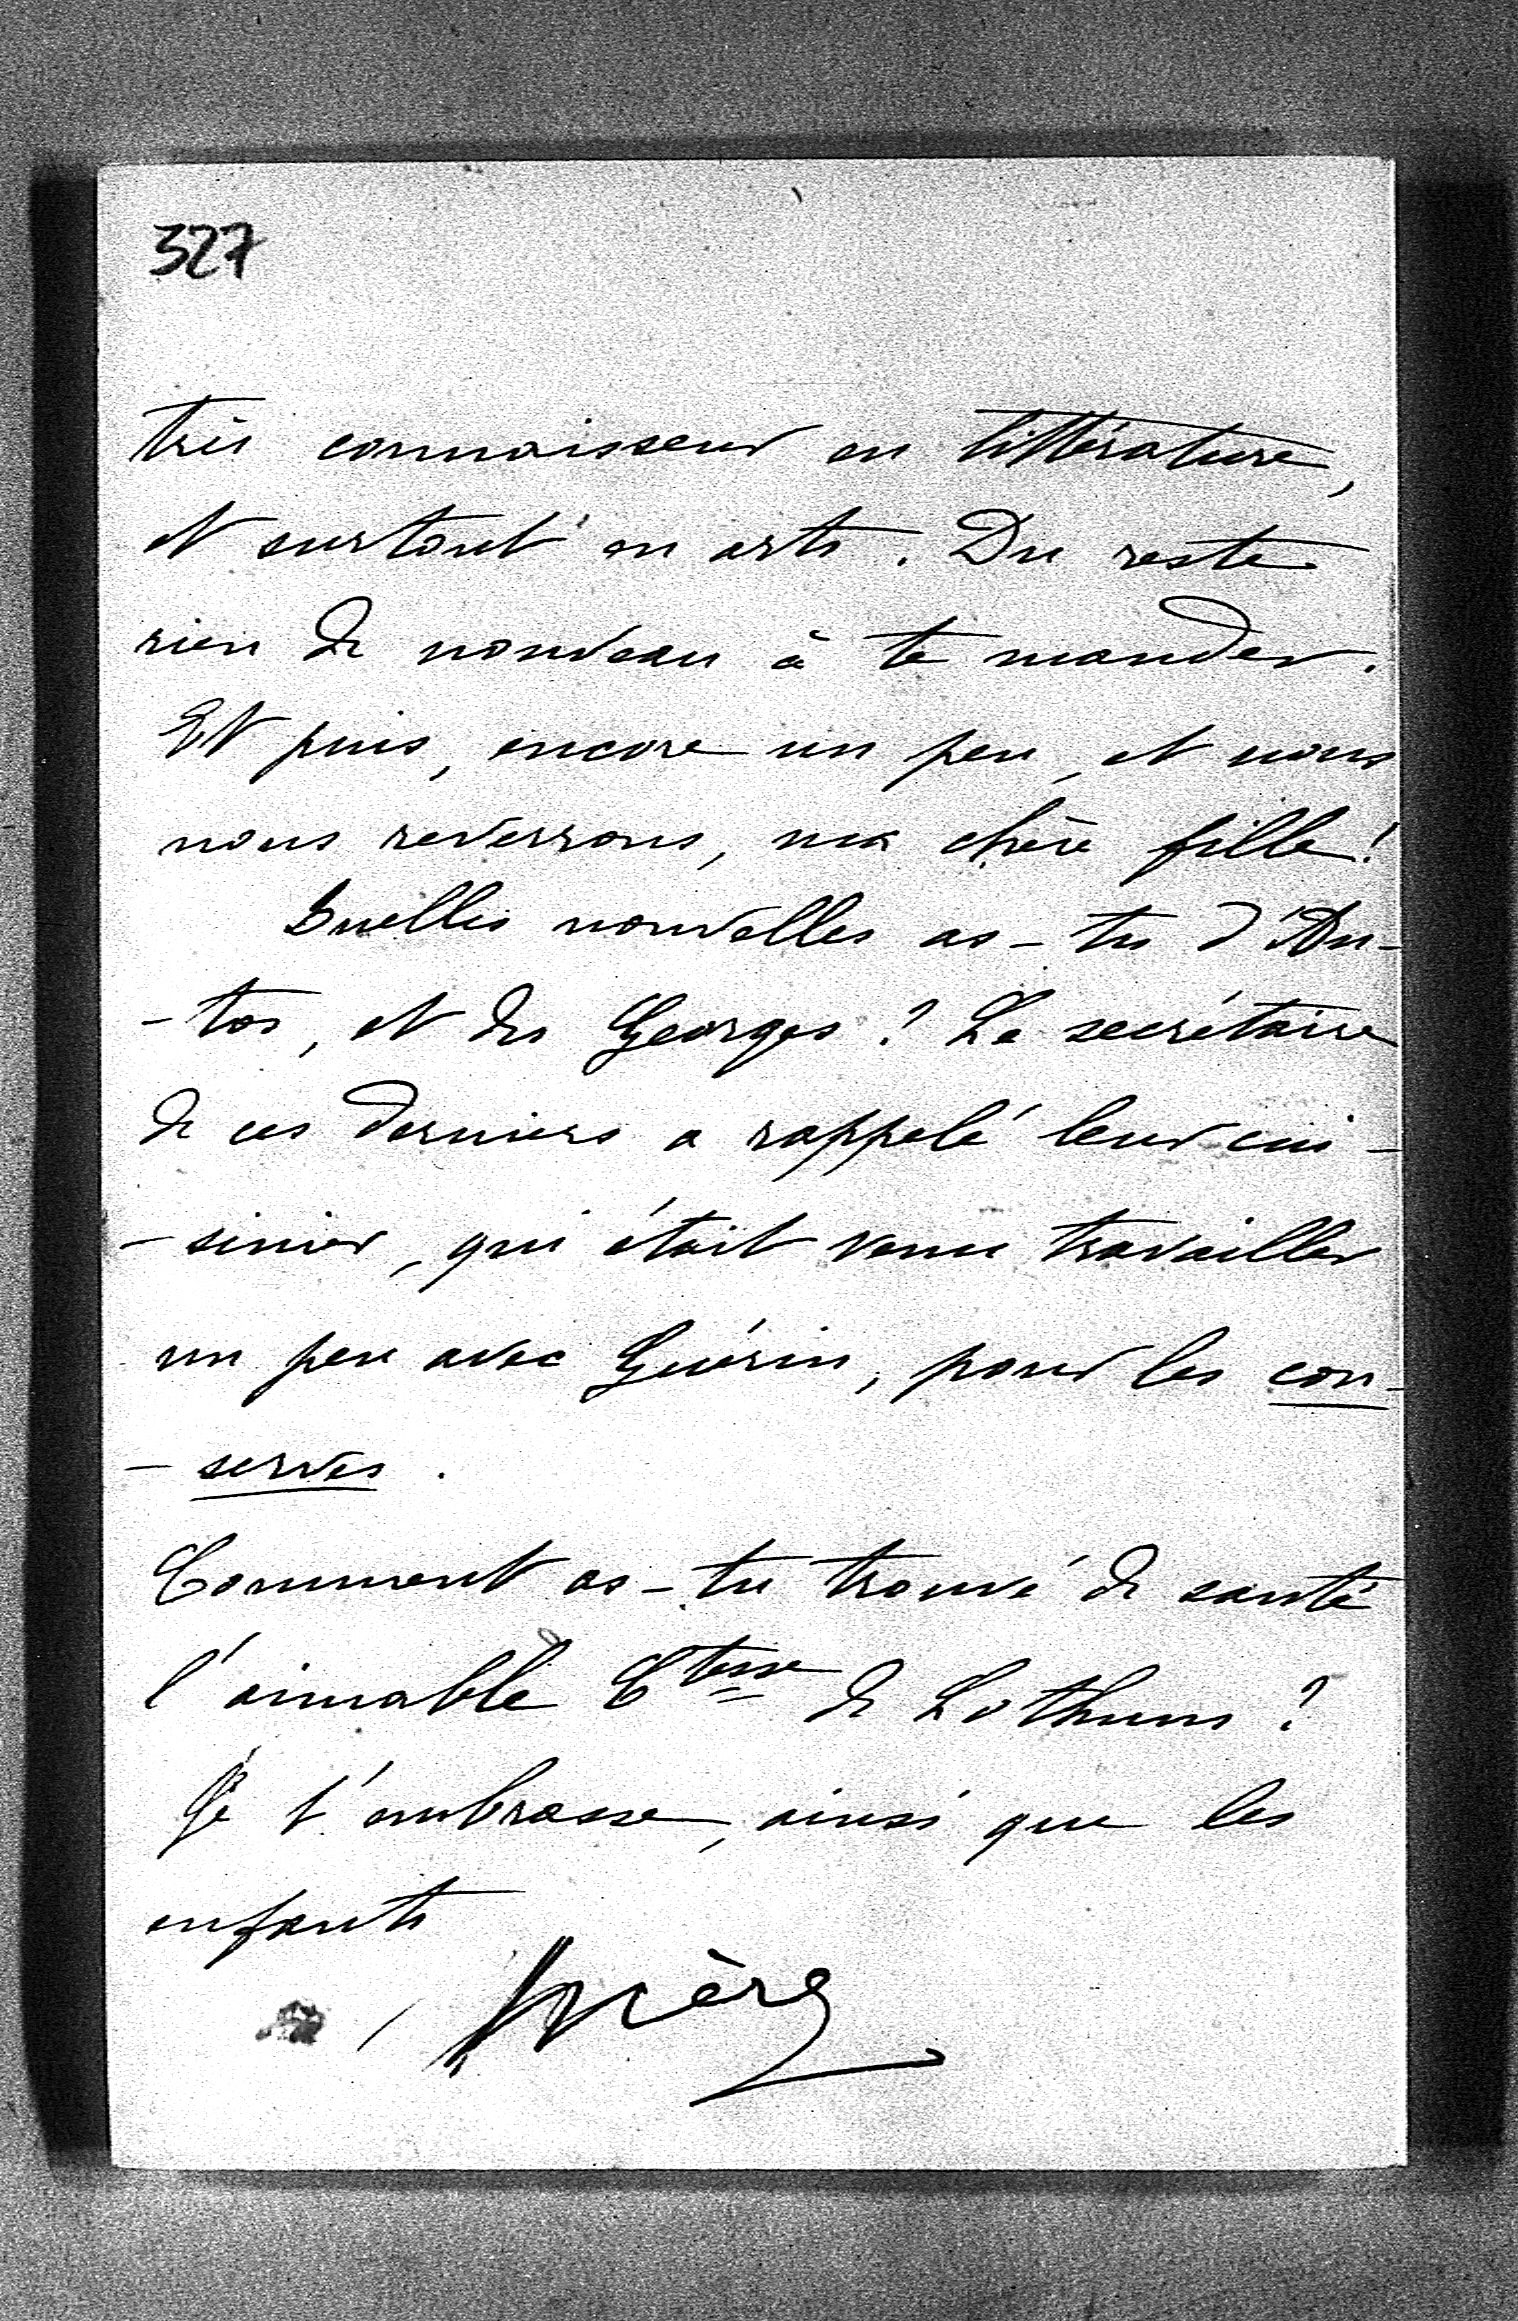 327
très connaisseur en littérature,
et surtout en arts. Du reste
rien de nouveau à te mander.
Et puis, encore un peu, et nous
nous reverrons, ma chère fille!
Quelles nouvelles as-tu
-tos, et des Georges? Le secrétaire
de ces derniers a rappelé leur cui-
-sinier, qui était venu travailler
un peu avec Guérin, pour les con-
-serves.
Comment as-tu trouvé de santé
l'aimable Ctesse de
Je t'embrasse, ainsi que les
enfants
Mère